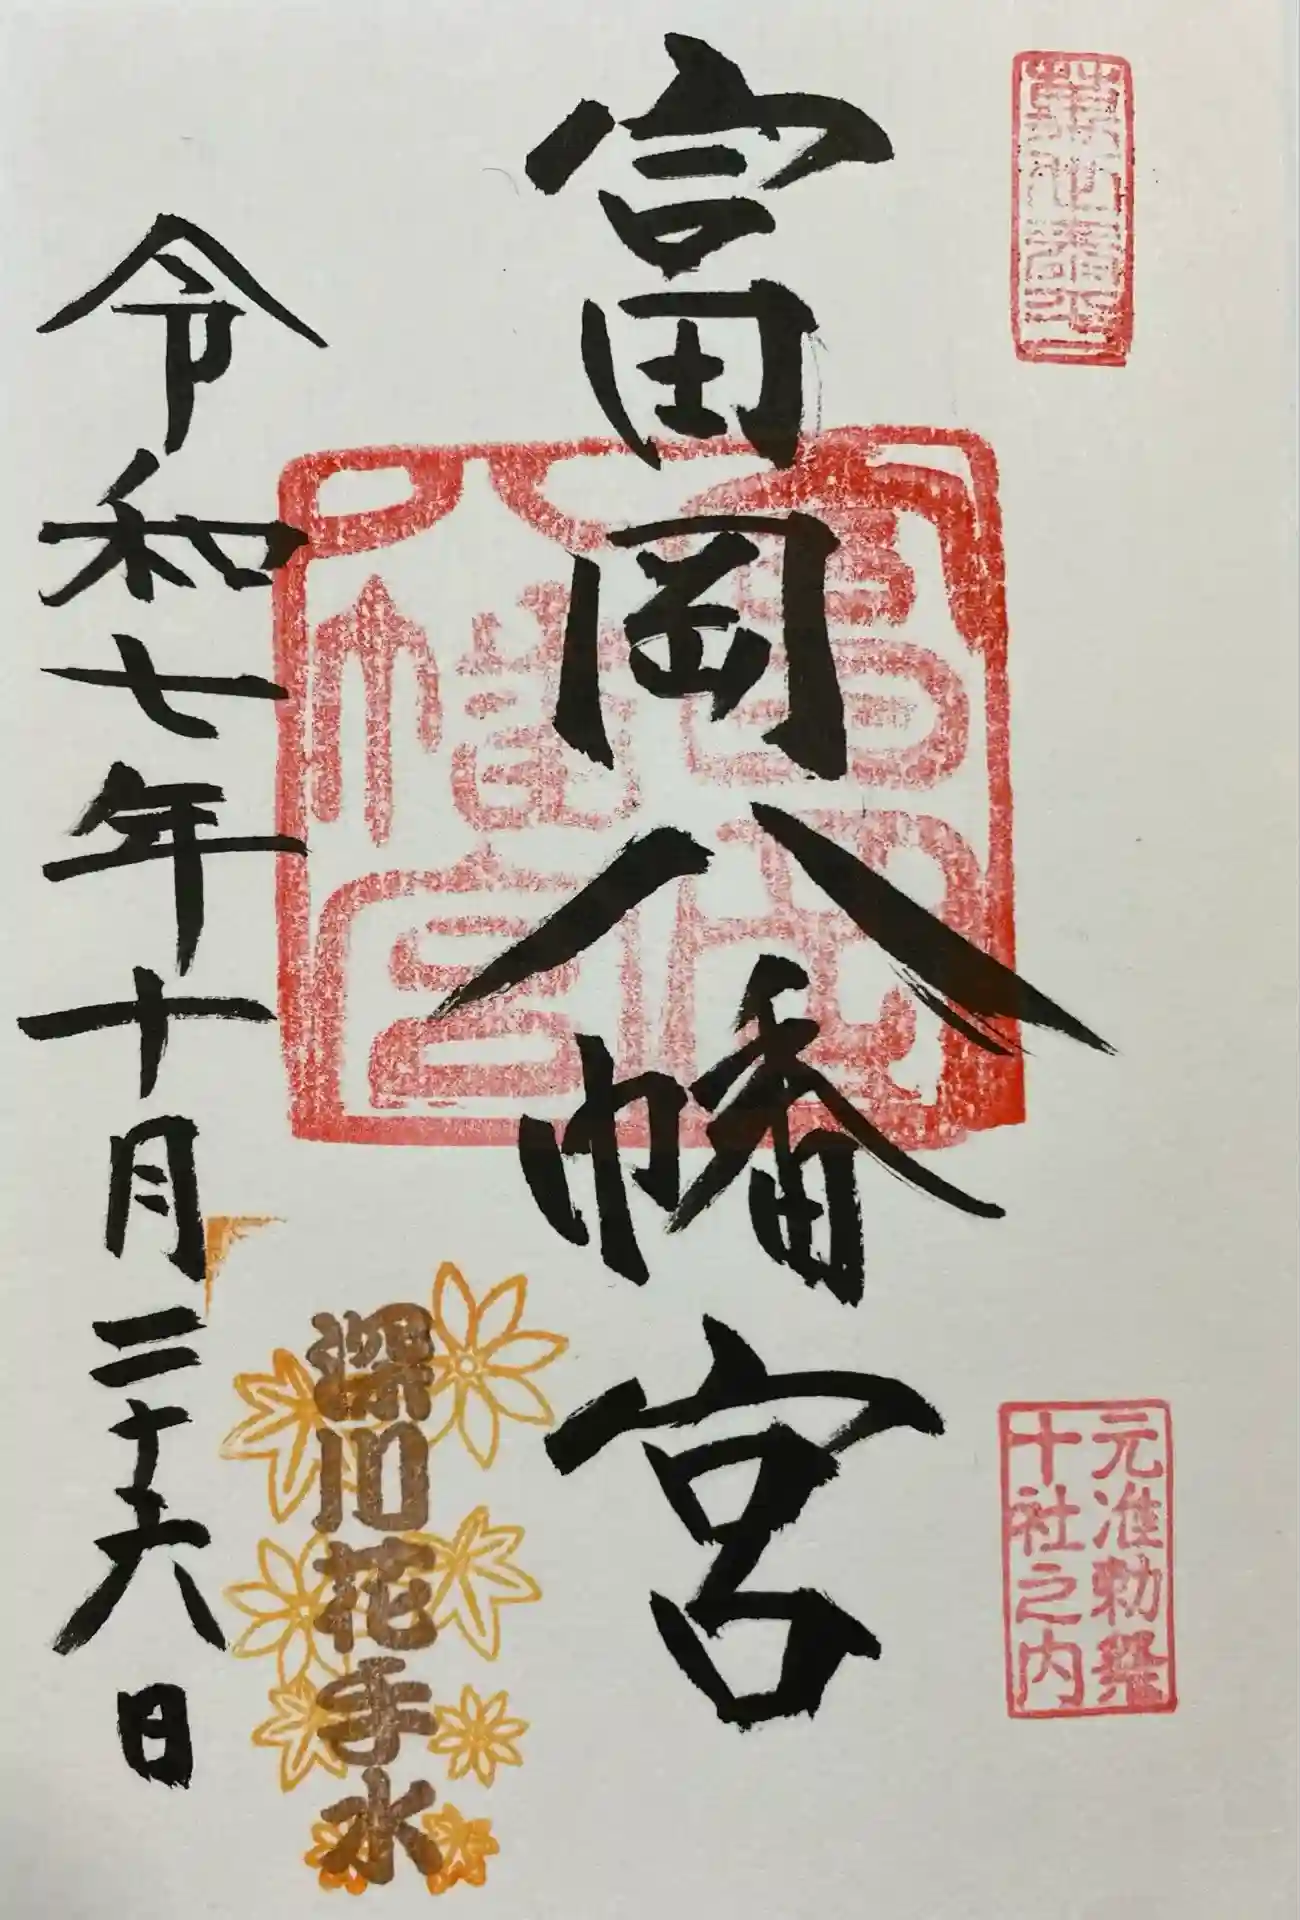 元准勅祭
十社之内
富岡八幡宮
富岡
八幡宮
深川花手水
令和七年十月二十六日